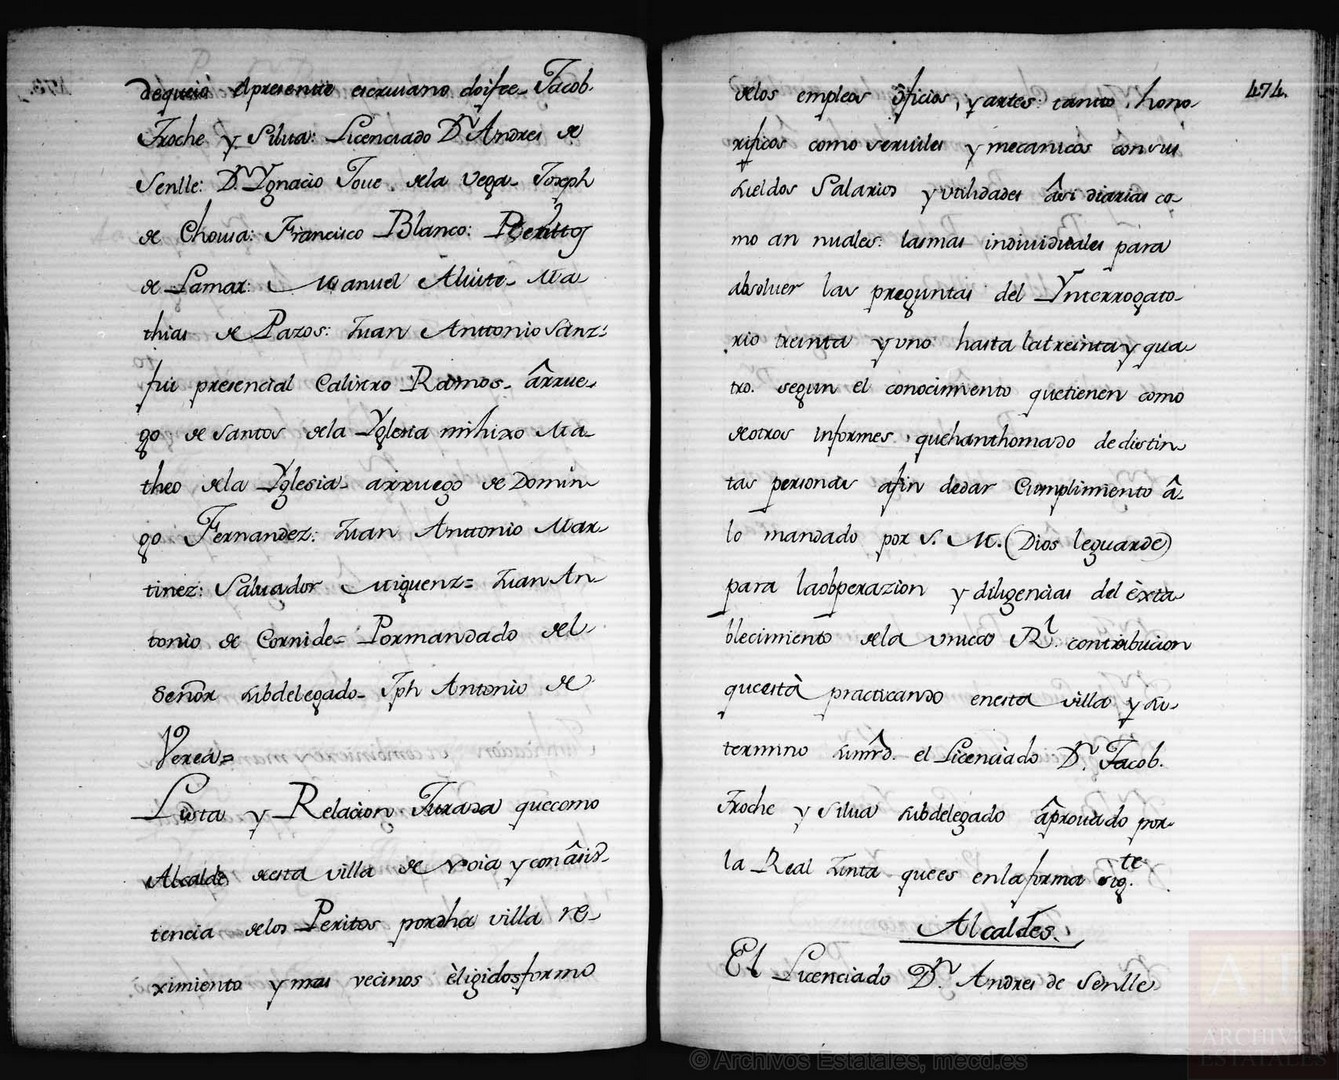 dequeió elpresente escriuano doifee- Jacob.
Froche y Silua: Licenciado Dn. Andres de
Senlle: Dn. Ygnacio Joue. dela Vega- Joseph
de Chousa: Francisco Blanco: Benitto
de Lamas: Manuel Aluite- Ma
thias de Pazos: Juan Anttonio Sanz:
fui presencial Calixtro Ramos- ârrue-
go de Santos dela Yglesia mihixo Ma-
theo dela Yglesia- arruego de Domin-
go Fernandez: Juan Anttonio Mar-
tinez: Saluador Miguenz= Juan An-
tonio de Cornide= Pormandado del
Señor subdelegado- Jph Antonio de
Verea=
Lista y Relacion Jurada quecomo
Alcalde desta villa de Noia y con âsis-
tencia delos Peritos pordha villa re-
ximiento y mas vecinos èligidosformo
474.
delos empleos ôficios, y artes: tantto hono-
rificos como seruiles y mecanicos consus
sueldos Salarios y utilidades âsi diarias co-
mo an nuales: lasmas individuales para
absoluer las preguntas del Ynterrogato-
rio treinta y uno hasta latreinta y qua-
tro. segun el conocimiento quetienen como
deotros informes, quehanthomado de distin-
tas personas afin dedar Cumplimiento â-
lo mandado por S. M. (Dios leguarde)
para laobperazion y diligencias del èxta-
blecimiento dela unica Rl. contribucion
questà practicando enesta villa y su-
termino sumrd. el Licenciado Dn. Jacob.
Froche y Silua subdelegado âprouado por-
la Real Junta quees enlaforma sigte.
Alcaldes.
El Licenciado Dn. Andres de Senlle
© Archivos Estatales, mecd.es
ARCHIVOS
ESTATALES